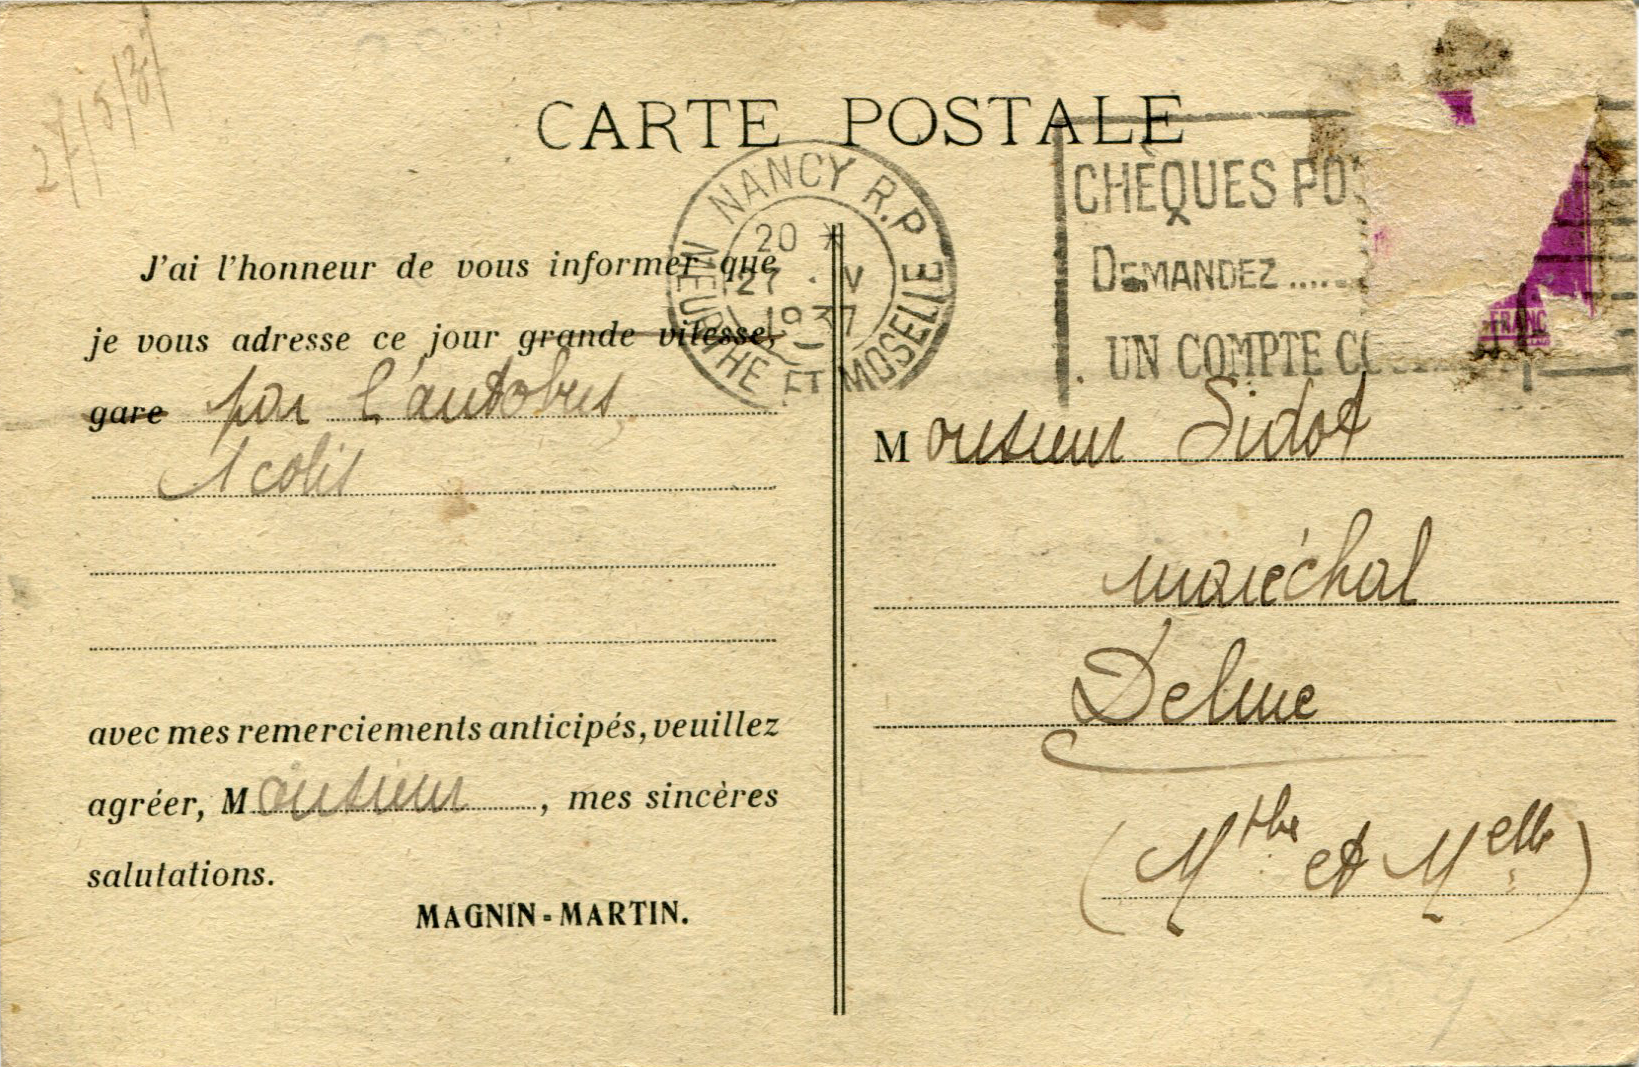 27/5/37
CARTE POSTALE
NANCY R.P
20 *
27 · V
1937
MEURTHE ET MOSELLE
CHÈQUES PO
DEMANDEZ .....
UN COMPTE C
FRANC
J'ai l'honneur de vous informer que
je vous adresse ce jour grande vitesse,
gare par l'autobus
1 colis
avec mes remerciements anticipés, veuillez
agréer, Monsieur, mes sincères
salutations.
MAGNIN-MARTIN.
Monsieur Sidot
maréchal
Delme
(Mthe et Melle)